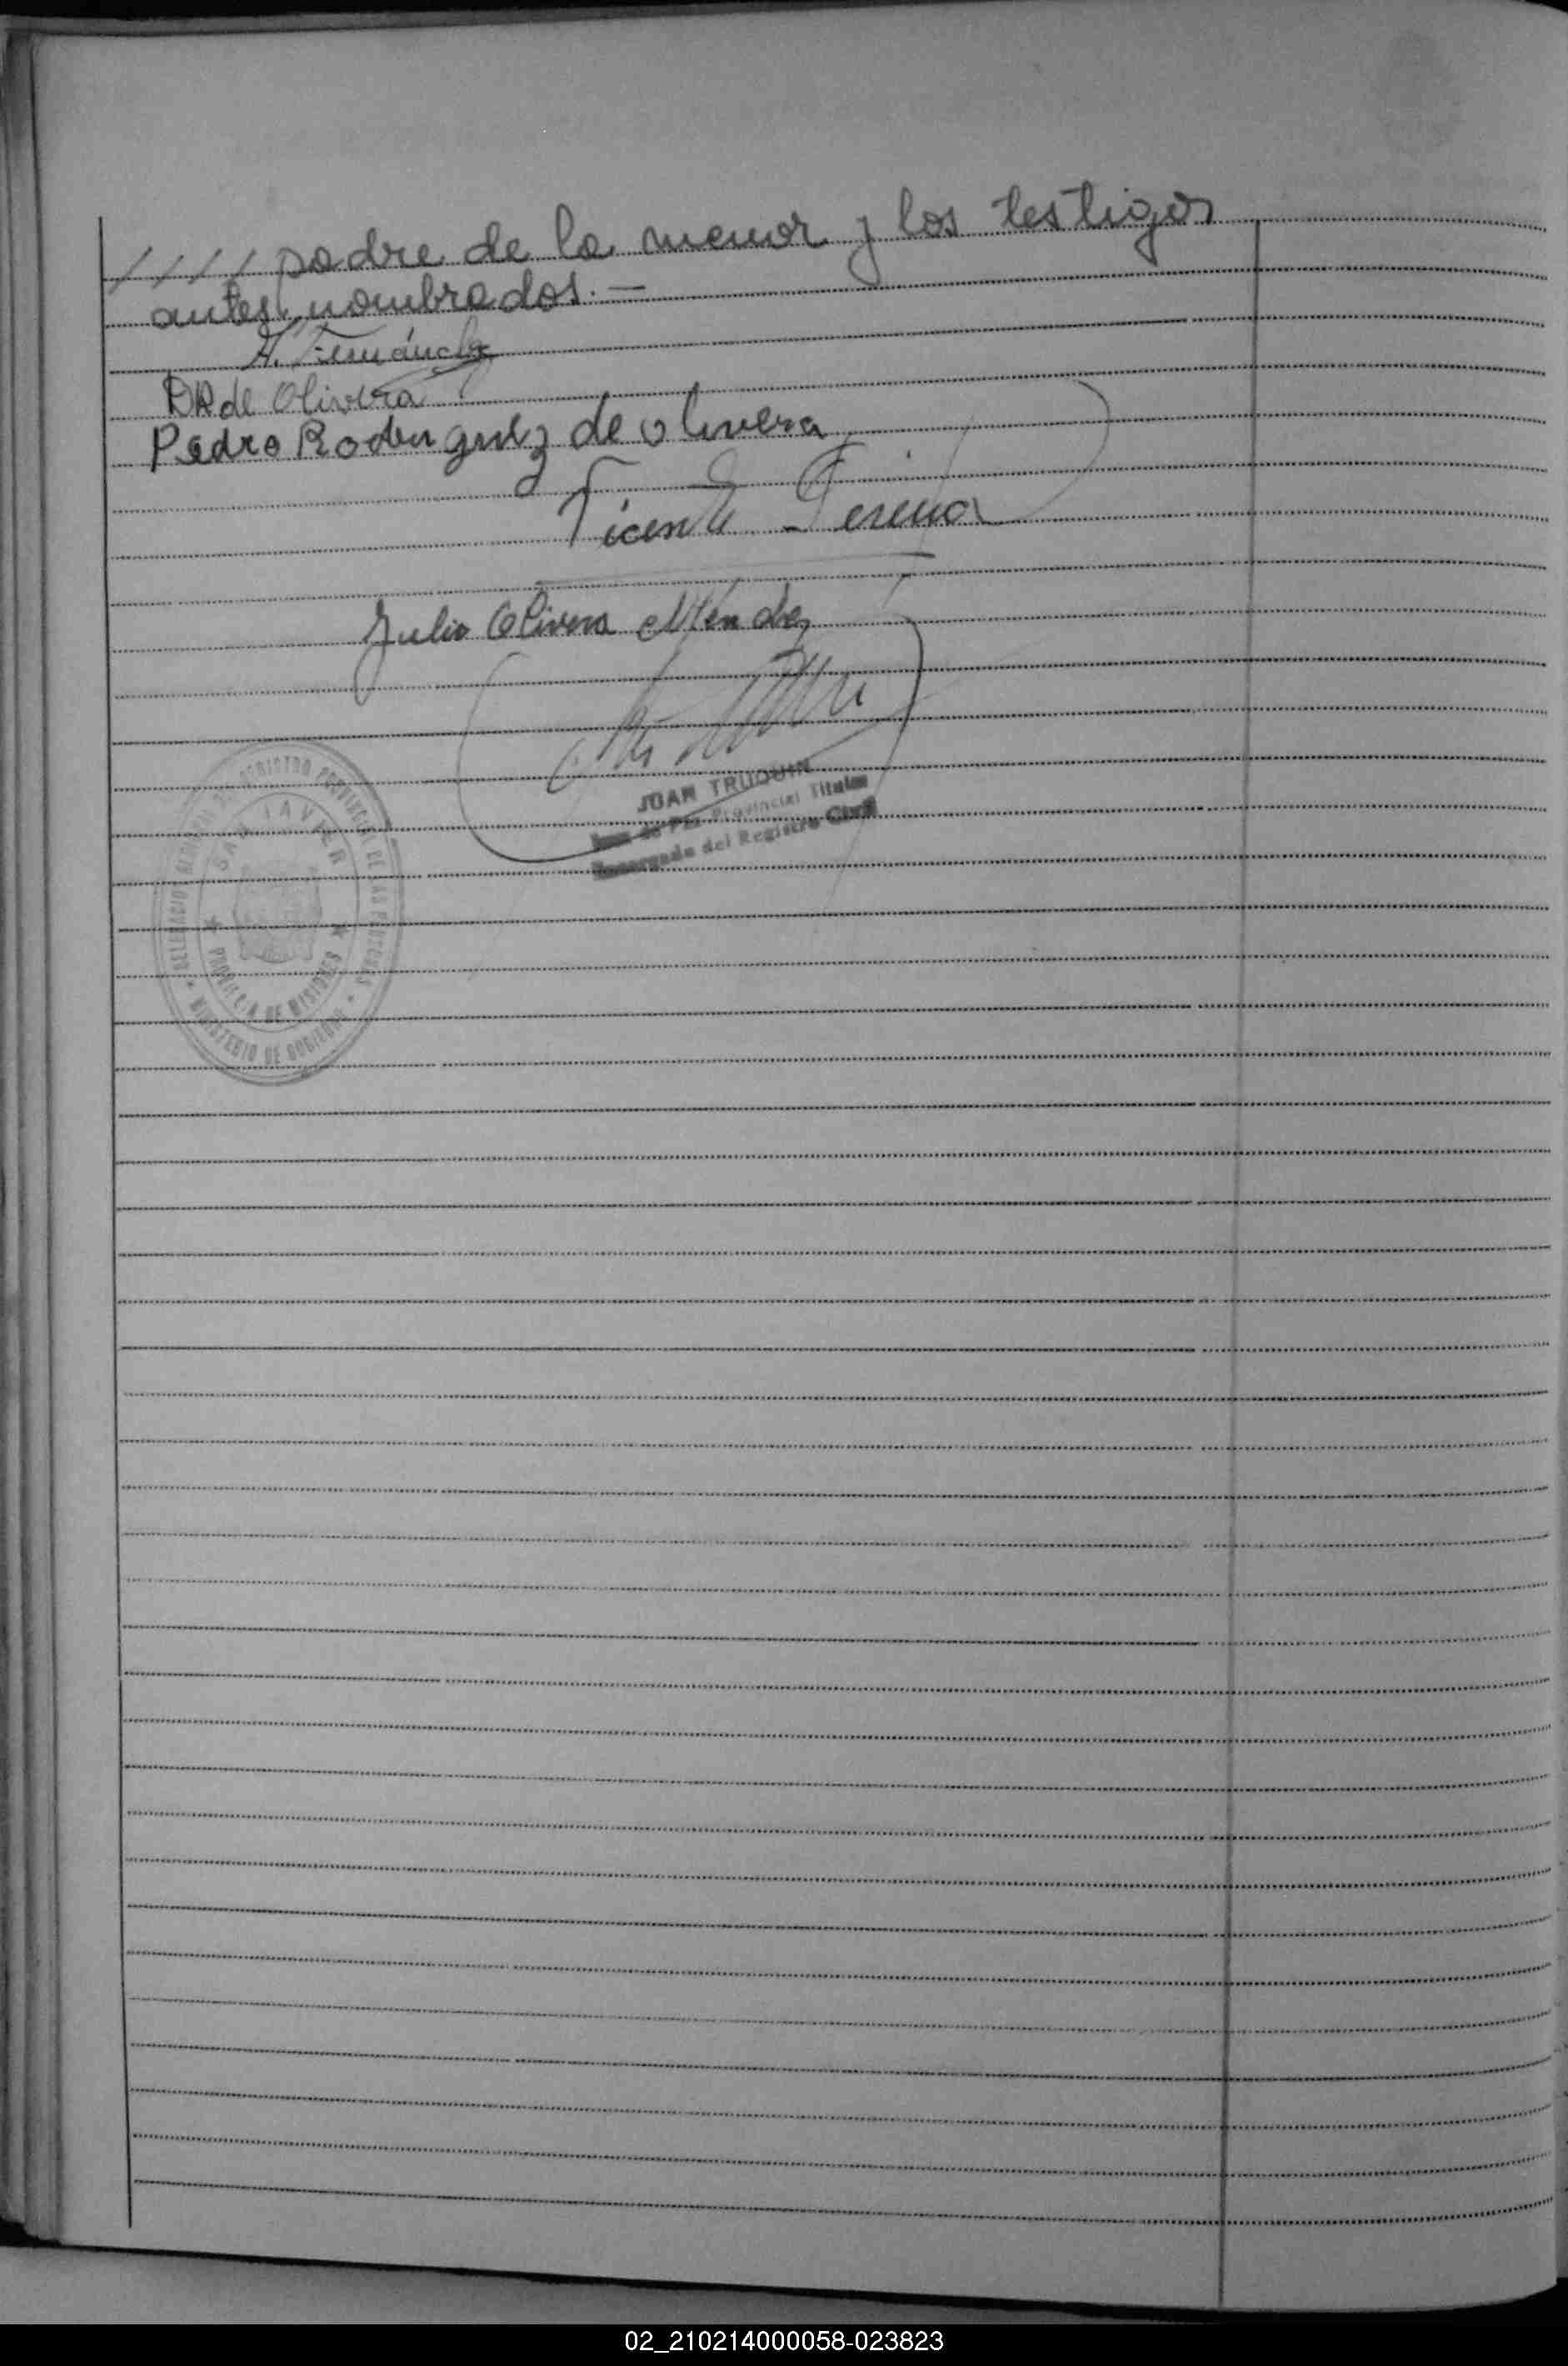 //// padre de la menor y los testigos
antes nombrados.—
A. Fernández
DR de Olivera
Pedro Rodriguez de olivera
Vicente Pereira
Julio Olivera Méndez
JUAN TRUQUIN
Juez de Paz Provincial Titular
Encargado del Registro Civil
REGISTRO PROVINCIAL DE LAS PERSONAS
SAN JAVIER
PROVINCIA DE MISIONES
MINISTERIO DE GOBIERNO
02_210214000058-023823